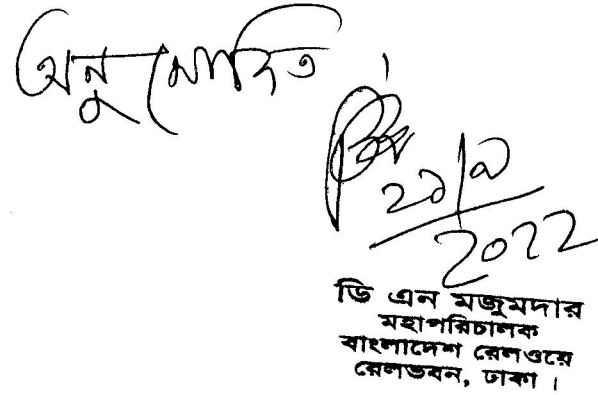 অনুমোদিত ।
২০২২
ডি এন মজুমদার
মহাপরিচালক
বাংলাদেশ রেলওয়ে
রেলভবন, ঢাকা ।